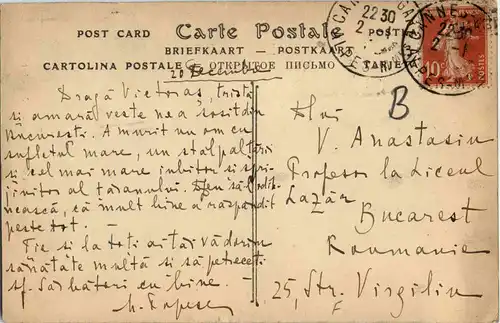 Carte Postale
POST CARD
BRIEFKAART — POSTKAART
CARTOLINA POSTALE — ОТКРЫТОЕ ПИСЬМО
20 Decembre
22 30
22 30
10 c
POSTES
B
Dragă Victoraș, tristă
și amară veste ne-a sosit din
București. A murit un om cu
sufletul mare, un stâlp al țării
și cel mai mare iubitor și spri-
jinitor al țăranului. D-zeu să-l odih-
nească, că mult bine a răspândit
peste tot. —
Ție și la toți ai tăi vă dorim
sănătate multă și să petreceți
sf. Sărbători cu bine.
D-lui
V. Anastasiu
Profesor la Liceul
Lazăr
Bucarest
Roumanie
25, Str. Virgiliu